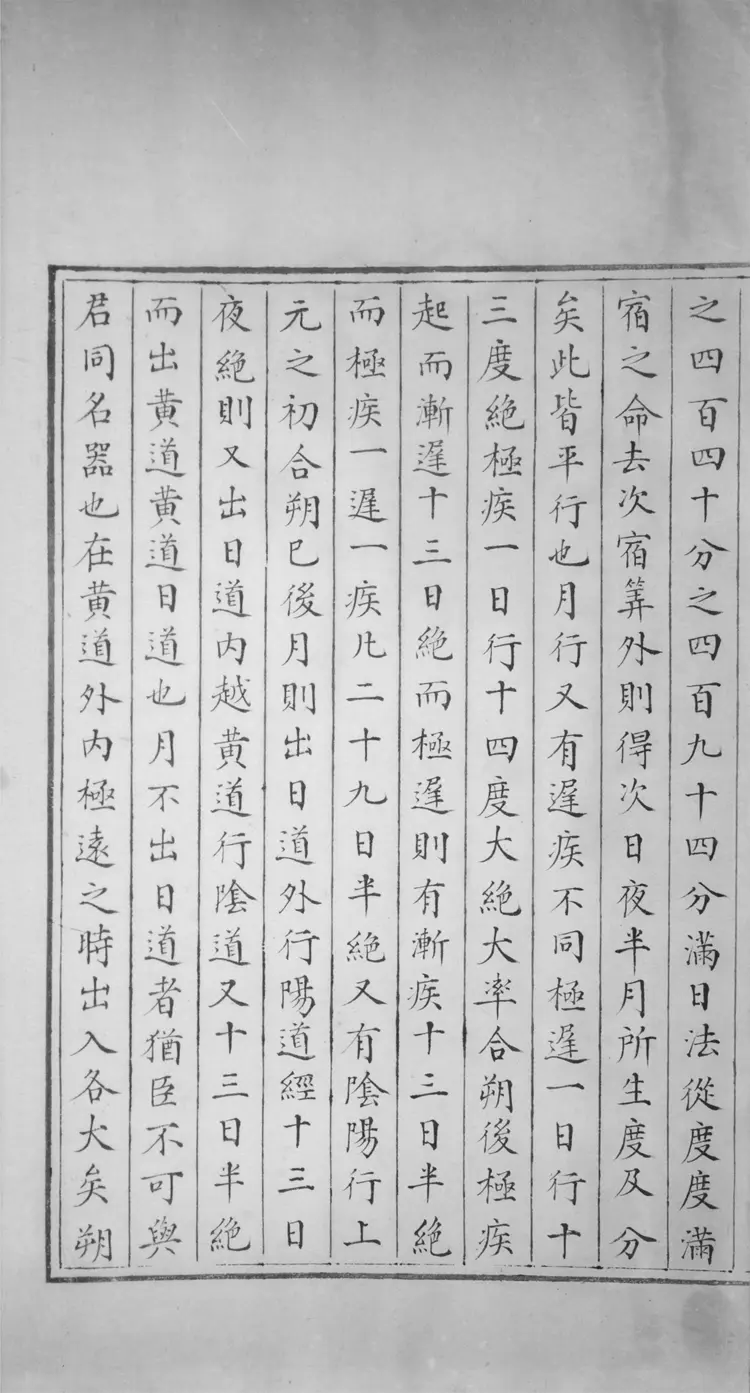 之四百四十分之四百九十四分滿日法從度度滿
宿之命去次宿筭外則得次日夜半月所生度及分
矣此皆平行也月行又有遲疾不同極遲一日行十
三度絶極疾一日行十四度大絶大率合朔後極疾
起而漸遲十三日絶而極遲則有漸疾十三日半絶
而極疾一遲一疾凡二十九日半絶又有陰陽行上
元之初合朔巳後月則出日道外行陽道經十三日
夜絶則又出日道内越黄道行陰道又十三日半絶
而出黄道黄道日道也月不出日道者猶臣不可與
君同名器也在黄道外内極遠之時出入各大矣朔